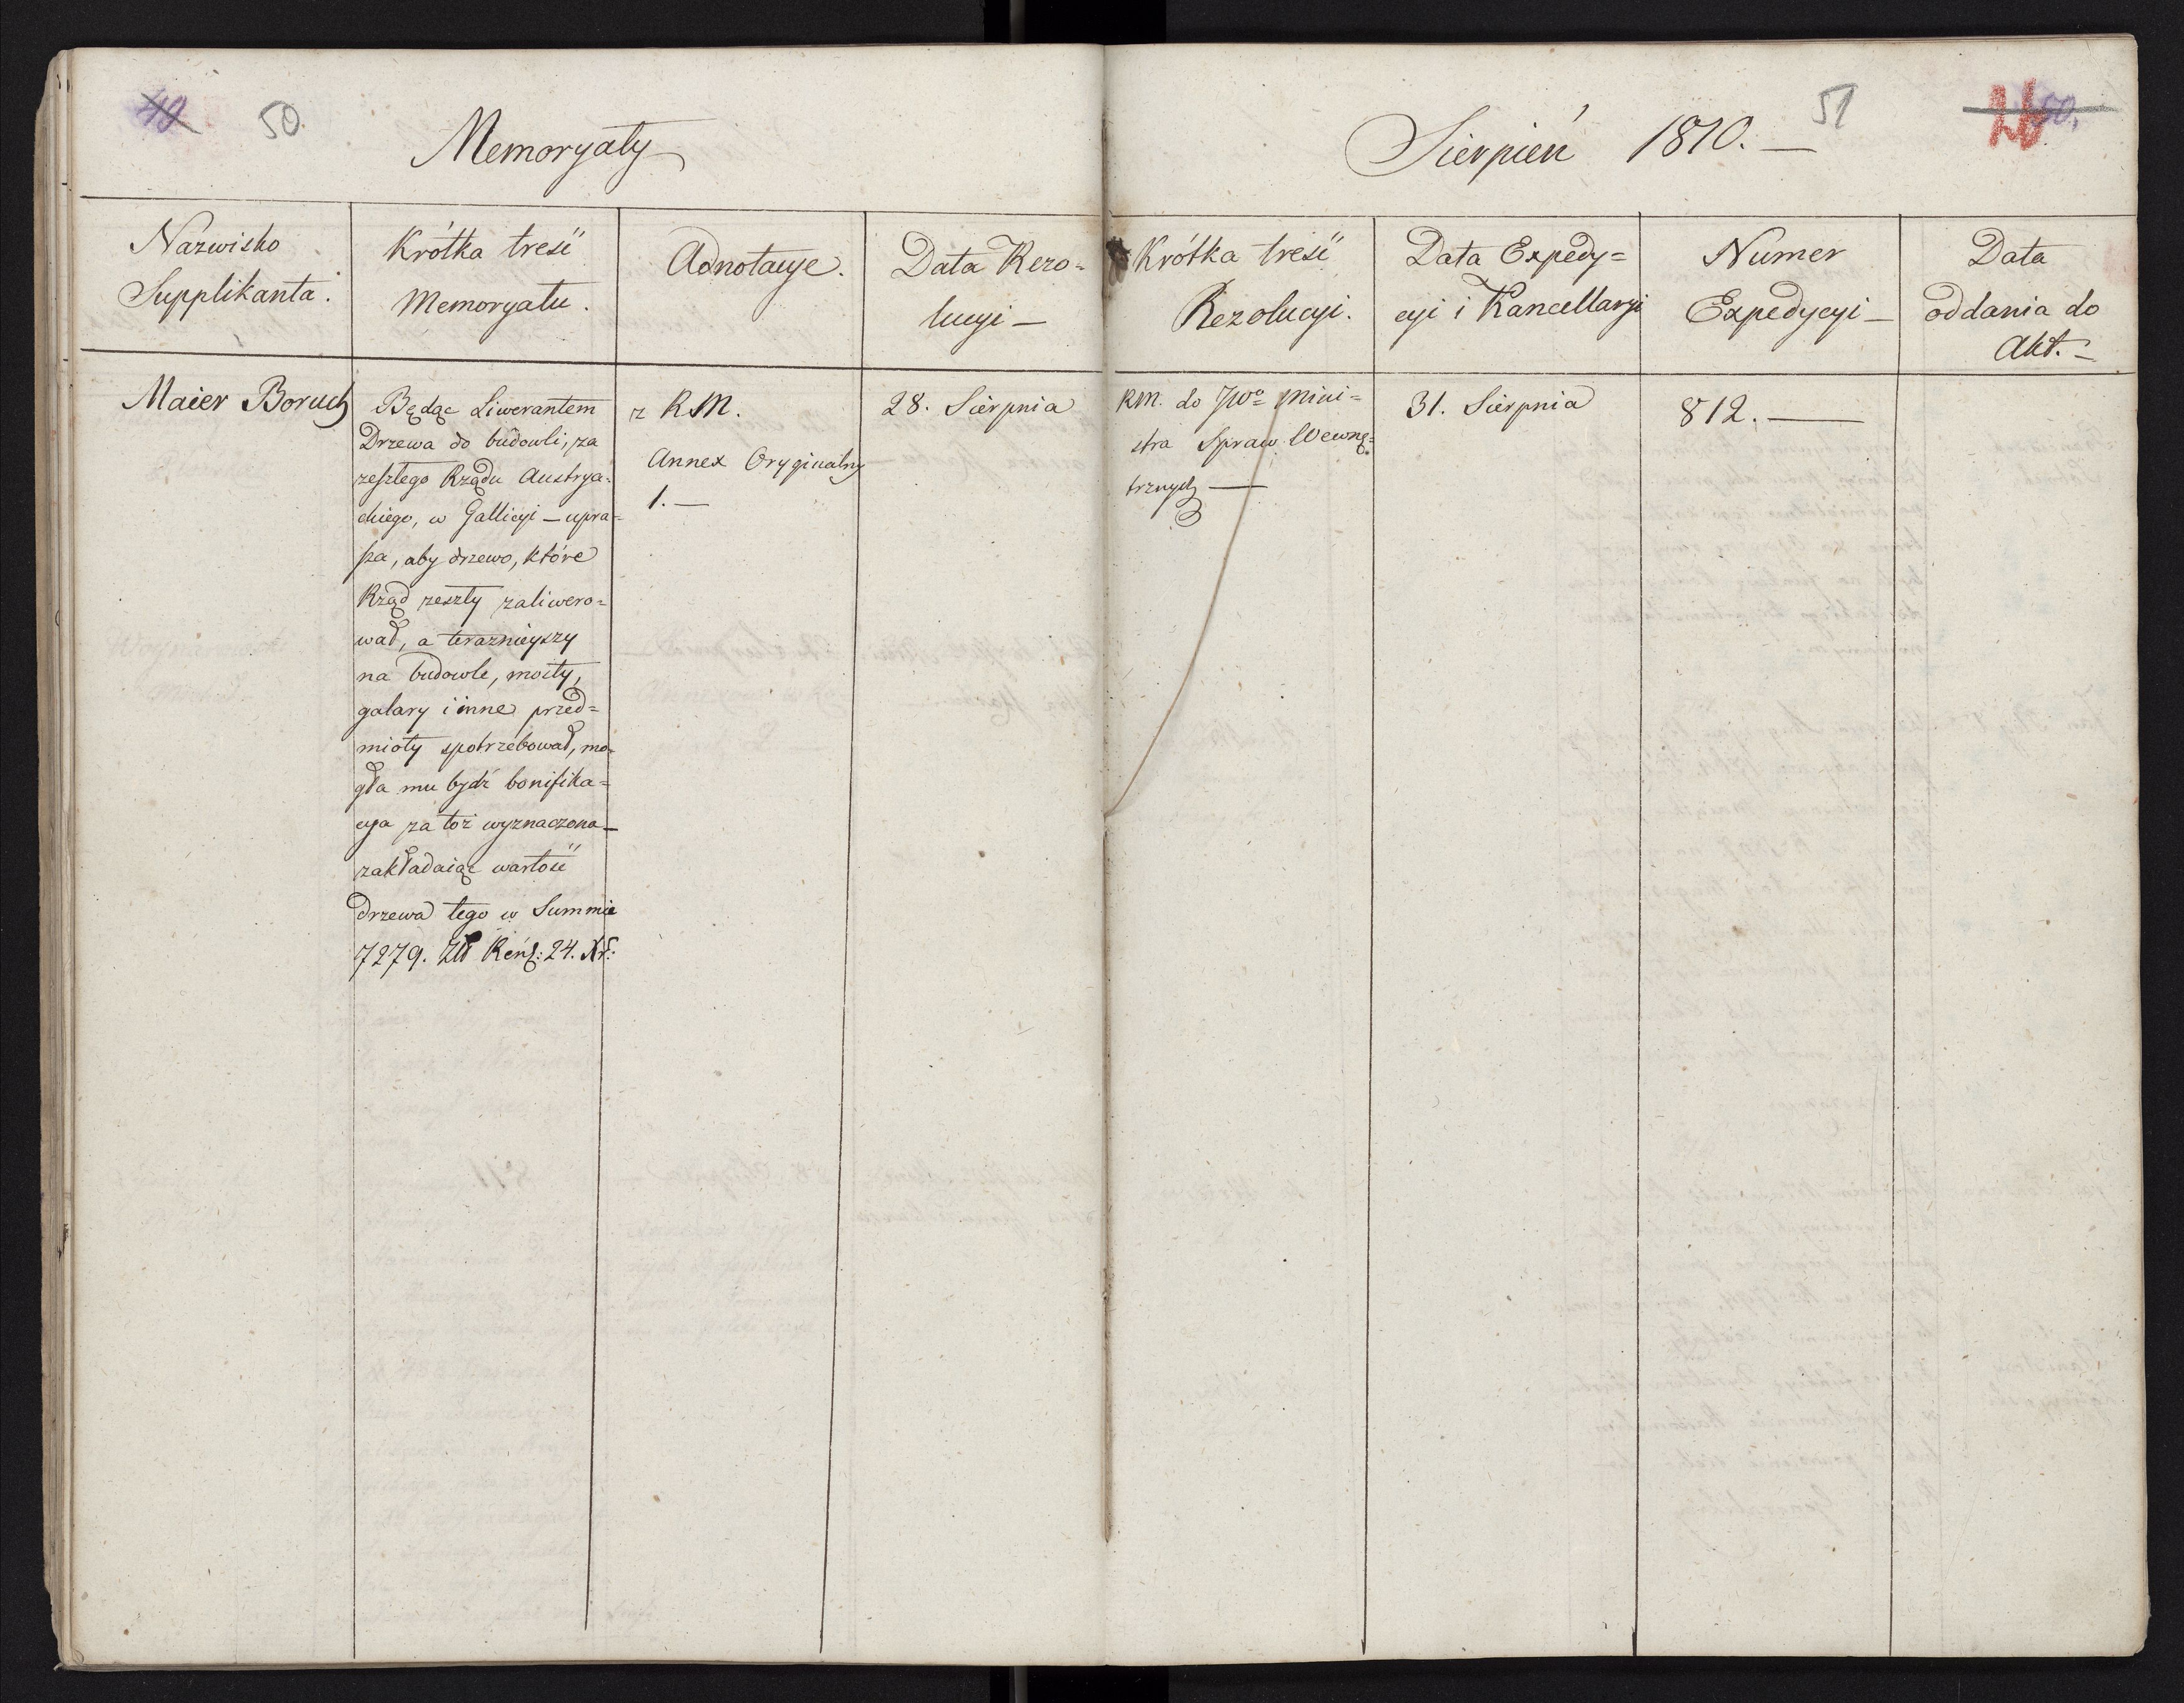 49 50.
Memoryały
Sierpień 1810. —
51
50.
Nazwisko
Supplikanta.
Krótka treść
Memoryału.
Adnotacye.
Data Rezo=
lucyi —
Krótka treść
Rezolucyi.
Data Expedy=
cyi i Kancellaryi
Numer
Expedycyi —
Data
oddania do
Akt. —
Maier Boruch
Będąc Liwerantem
Drzewa do budowli, za
zeszłego Rządu Austrya=
ckiego, w Gallicyi — upra=
sza, aby drzewo, które
Rząd zeszły zaliwero=
wał, a teraznieyszy
na budowle, mosty,
galary i inne przed=
mioty spotrzebował, mo=
gła mu bydź bonifika=
cya za toż wyznaczona —
zakładaiąc wartość
drzewa tego w Summie
7279. Zł Reńs: 24. Xr:
z RM.
Annex Oryginalny
1. —
28. Sierpnia
RM. do JWo Mini=
stra Spraw Wewnę=
trznych —
31. Sierpnia
812. —